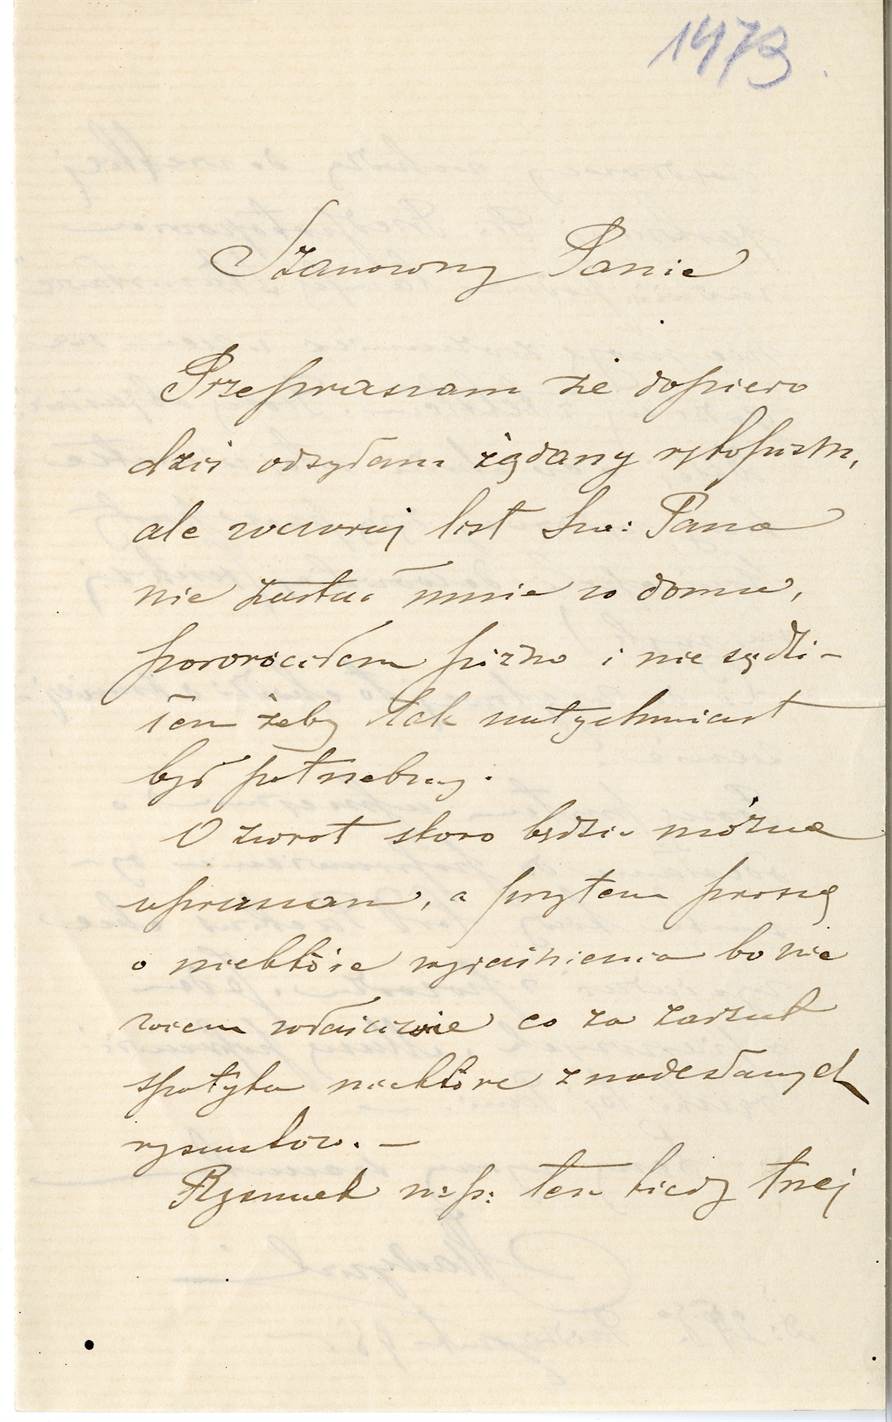 1473
Szanowny Panie
Przepraszam że dopiero
dziś odsyłam żądany rękopism,
ale wczoraj list Sza: Pana
nie zastał mnie w domu,
powróciłem późno i nie sądzi-
łem żeby tak natychmiast
był potrzebny.
O zwrot skoro będzie można
upraszam, a przytem proszę
o niektóre wyjaśnienia bo nie
wiem właściwie co za zarzut
spotyka niektóre z nadesłanych
rysunków. —
Rysunek np: ten kiedy trzej